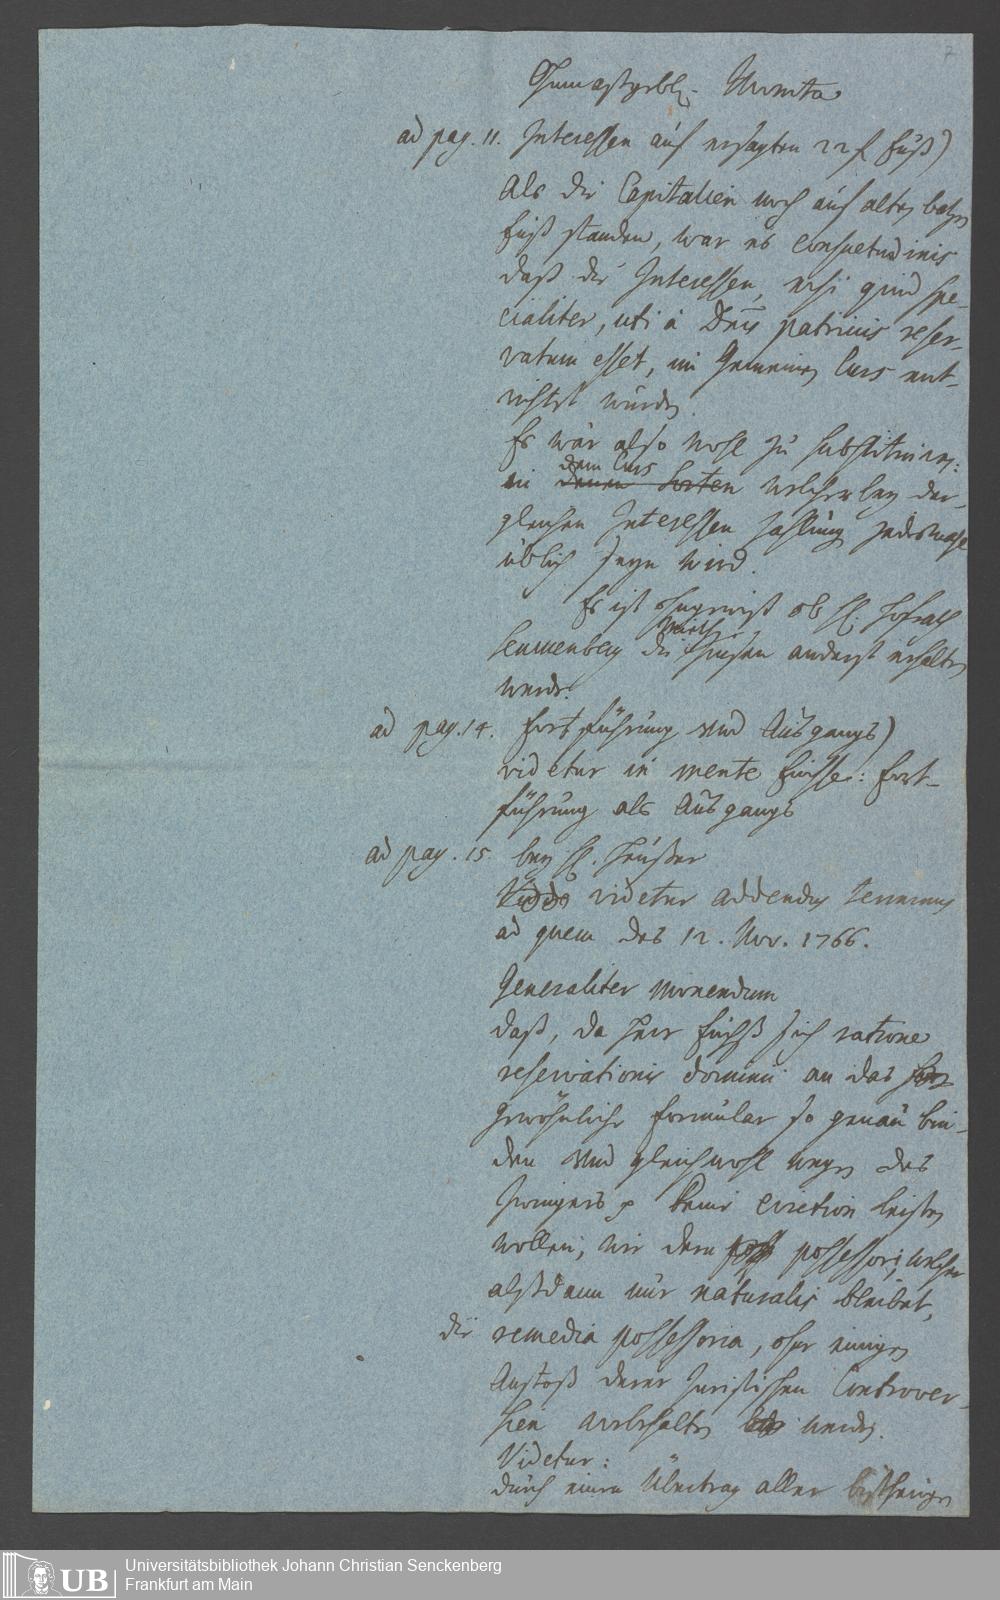 7
Monita
ad pag. 11. Interessen auf ersagten 22 f. Fuß)
Als die Capitalien noch auf alten
Fuß standen, war es consuetudinis
daß die Interessen, nisi quid spe-
cialiter, uti à Dnis patruis reser-
vatum esset, im Gemeinen Curs ent-
richtet würden.
Es wär also wohl zu substituiren:
dem Curs
in denen Sorten welcher bey der-
gleichen Interessen Zahlung jedesmahl
üblich seyn wird.
Es ist ohngewiß ob H. Hofrath
Senckenberg die anderst erhalten
werde.
ad pag. 14. Fortführung und Ausgangs)
videtur in mente fuisse: Fort-
führung als Ausgangs
ad pag. 15. bey H. Häußer
videtur addendus terminus
ad quem des 12. Nov. 1766.
Generaliter monendum
daß, da Herr Fuchß sich ratione
reservationis dominii an das
gewöhnliche Formular so genau bin-
den und gleichwohl wegen des
Zwingers keine Eviction leisten
wollen, wir dem possessori, welcher
alßdann nur naturalis bleibet,
die remedia possessoria, ohne einigen
Anstoß derer Juristischen Controver-
sien vorbehalten werden.
Videtur:
durch einen Übertrag aller
Universitätsbibliothek Johann Christian Senckenberg
Frankfurt am Main
UB